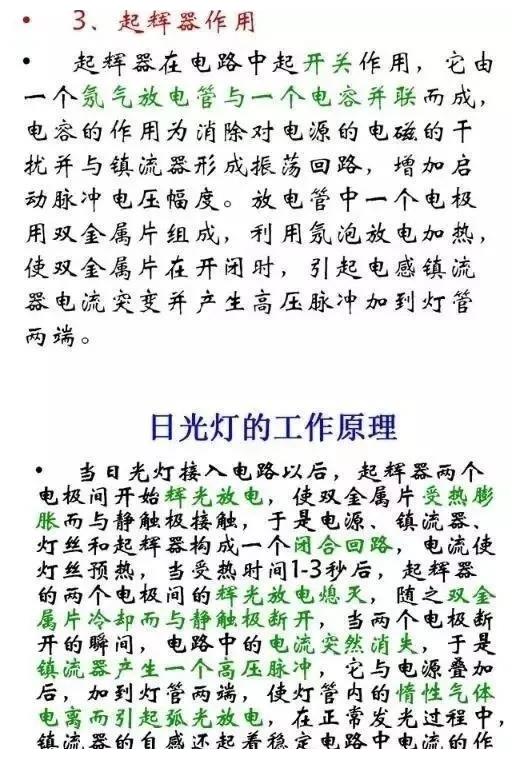 • 3、起辉器作用
• 起辉器在电路中起开关作用，它由
一个氖气放电管与一个电容并联而成，
电容的作用为消除对电源的电磁的干
扰并与镇流器形成振荡回路，增加启
动脉冲电压幅度。放电管中一个电极
用双金属片组成，利用氖泡放电加热，
使双金属片在开闭时，引起电感镇流
器电流突变并产生高压脉冲加到灯管
两端。
日光灯的工作原理
• 当日光灯接入电路以后，起辉器两个
电极间开始辉光放电，使双金属片受热膨
胀而与静触极接触，于是电源、镇流器、
灯丝和起辉器构成一个闭合回路，电流使
灯丝预热，当受热时间1-3秒后，起辉器
的两个电极间的辉光放电熄灭，随之双金
属片冷却而与静触极断开，当两个电极断
开的瞬间，电路中的电流突然消失，于是
镇流器产生一个高压脉冲，它与电源叠加
后，加到灯管两端，使灯管内的惰性气体
电离而引起弧光放电，在正常发光过程中，
镇流器的自感还起着稳定电路中电流的作